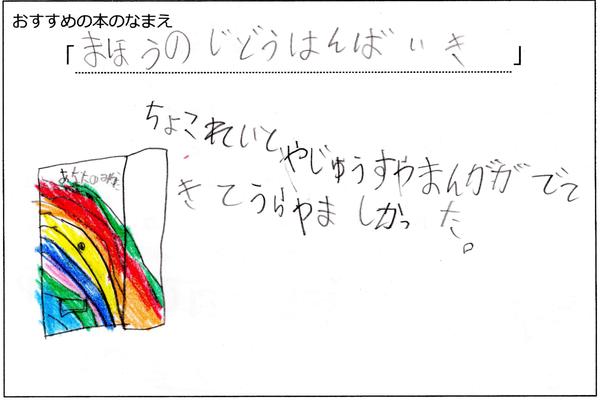 おすすめの本のなまえ
「まほうのじどうはんばいき」
ちょこれいとやじゅうすやまんががでて
きてうらやましかった。